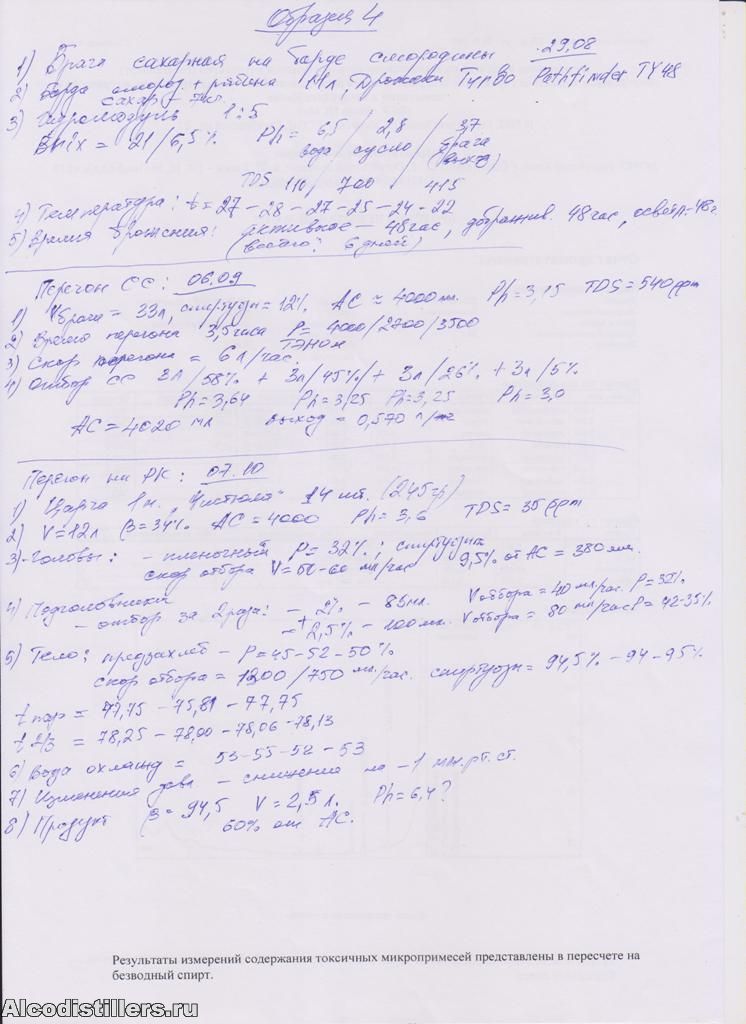 Образец 4
1) Брага сахарная на барде смородины 29.08
2) Барда смород. + рябина Дрожжи Турбо Pathfinder TY48
сахар 7кг
3) Гидромодуль 1:5
Brix = 21/6,5% Ph = 6,5 / 2,8 / 3,7
вода сусло брага
TDS 110 / 700 / 415
4) Температура: t = 27 - 28 - 27 - 25 - 24 - 22
5) Время брожения: (активное - 48час, дображив. 48час, осветл. - 48г.
(всего: 6 дней)
Перегон СС: 06.09
1) Vбраги = 33л, спиртуозн = 12%. АС ≈ 4000мл. Ph = 3,15 TDS = 540ppm
2) Время перегона 3,5часа P = 4000/2700/3500
ТЭНом
3) Скор перегона = 6л/час.
4) Отбор СС 3л/58% + 3л/45% + 3л/26% + 3л/5%
Ph = 3,64 Ph = 3,25 Ph = 3,25 Ph = 3,0
АС = 4020 мл выход = 0,570 л/кг
Перегон на РК: 07.10
1) Царга 1м. "Чистюля" 14 шт. (245гр)
2) V = 12л β = 34% АС = 4000 Ph = 3,6 TDS = 35ppm
3) Головы: - пленочный P = 32%; спиртуозн
скор отбора V = 50-60 мл/час 9,5% от АС = 380мл.
4) Подголовники
- отбор за 2 раза: - 2% - 85мл. Vотбора = 40мл/час. P = 32%
+ - 2,5% - 100мл. Vотбора = 80мл/час P = 42-35%
5) Тело: предзахлеб - P = 45-52-50%
скор отбора = 1300/750 мл/час. спиртуозн = 94,5% - 94 - 95%
t пар = 77,75 - 75,81 - 77,75
t 2/3 = 78,25 - 78,00 - 78,06 - 78,13
6) Вода охлажд = 53-55-52-53
7) Изменения давл. - снижение на -1 мм.рт.ст.
8) Продукт β = 94,5 V = 2,5л. Ph = 6,4?
60% от АС.
Результаты измерений содержания токсичных микропримесей представлены в пересчете на
безводный спирт.
Alcodistillers.ru